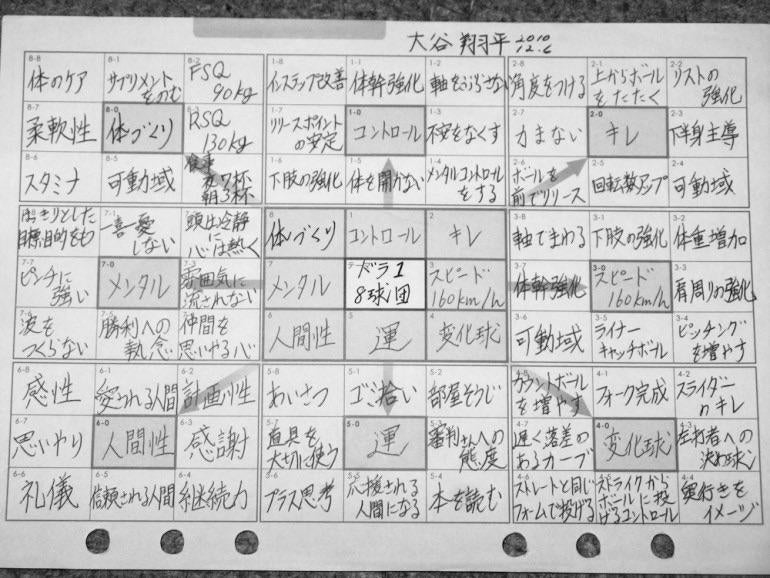 大谷 翔平 2010
12.6
8-8
体のケア
8-1
サプリメント
をのむ
FSQ
90kg
8-7
柔軟性
8-0
体づくり
RSQ
130kg
8-6
スタミナ
8-5
可動域
食事
夜7杯
朝3杯
1-8
インステップ改善
1-1
体幹強化
1-2
軸をぶらさない
1-7
リリースポイント
の安定
1-0
コントロール
1-3
不安をなくす
1-6
下肢の強化
1-5
体を開かない
1-4
メンタルコントロール
をする
2-8
角度をつける
2-1
上からボール
をたたく
2-2
リストの
強化
2-7
力まない
2-0
キレ
2-3
下半身主導
2-6
ボールを
前でリリース
2-5
回転数アップ
2-4
可動域
はっきりとした
目標、目的をもつ
7-1
一喜一憂
しない
頭は冷静に
心は熱く
7-7
ピンチに
強い
7-0
メンタル
7-3
雰囲気に
流されない
波を
つくらない
勝利への
執念
仲間を
思いやる心
8
体づくり
1
コントロール
2
キレ
7
メンタル
ドラ1
8球団
3
スピード
160km/h
6
人間性
5
運
4
変化球
3-8
軸でまわる
3-1
下肢の強化
3-2
体重増加
3-7
体幹強化
3-0
スピード
160km/h
3-3
肩周りの強化
3-6
可動域
3-5
ライナー
キャッチボール
3-4
ピッチング
を増やす
6-8
感性
6-1
愛される人間
6-2
計画性
6-7
思いやり
6-0
人間性
6-3
感謝
6-6
礼儀
6-5
信頼される人間
6-4
継続力
5-8
あいさつ
5-1
ゴミ拾い
5-2
部屋そうじ
5-7
道具を
大切に使う
5-0
運
審判さんへの
態度
5-6
プラス思考
5-5
応援される
人間になる
5-4
本を読む
4-8
カウントボール
を増やす
4-1
フォーク完成
4-2
スライダー
のキレ
遅く落差の
あるカーブ
4-0
変化球
4-3
左打者への
決め球
4-6
ストレートと同じ
フォームで投げる
ストライクから
ボールに投
げるコントロール
4-4
奥行きを
イメージ